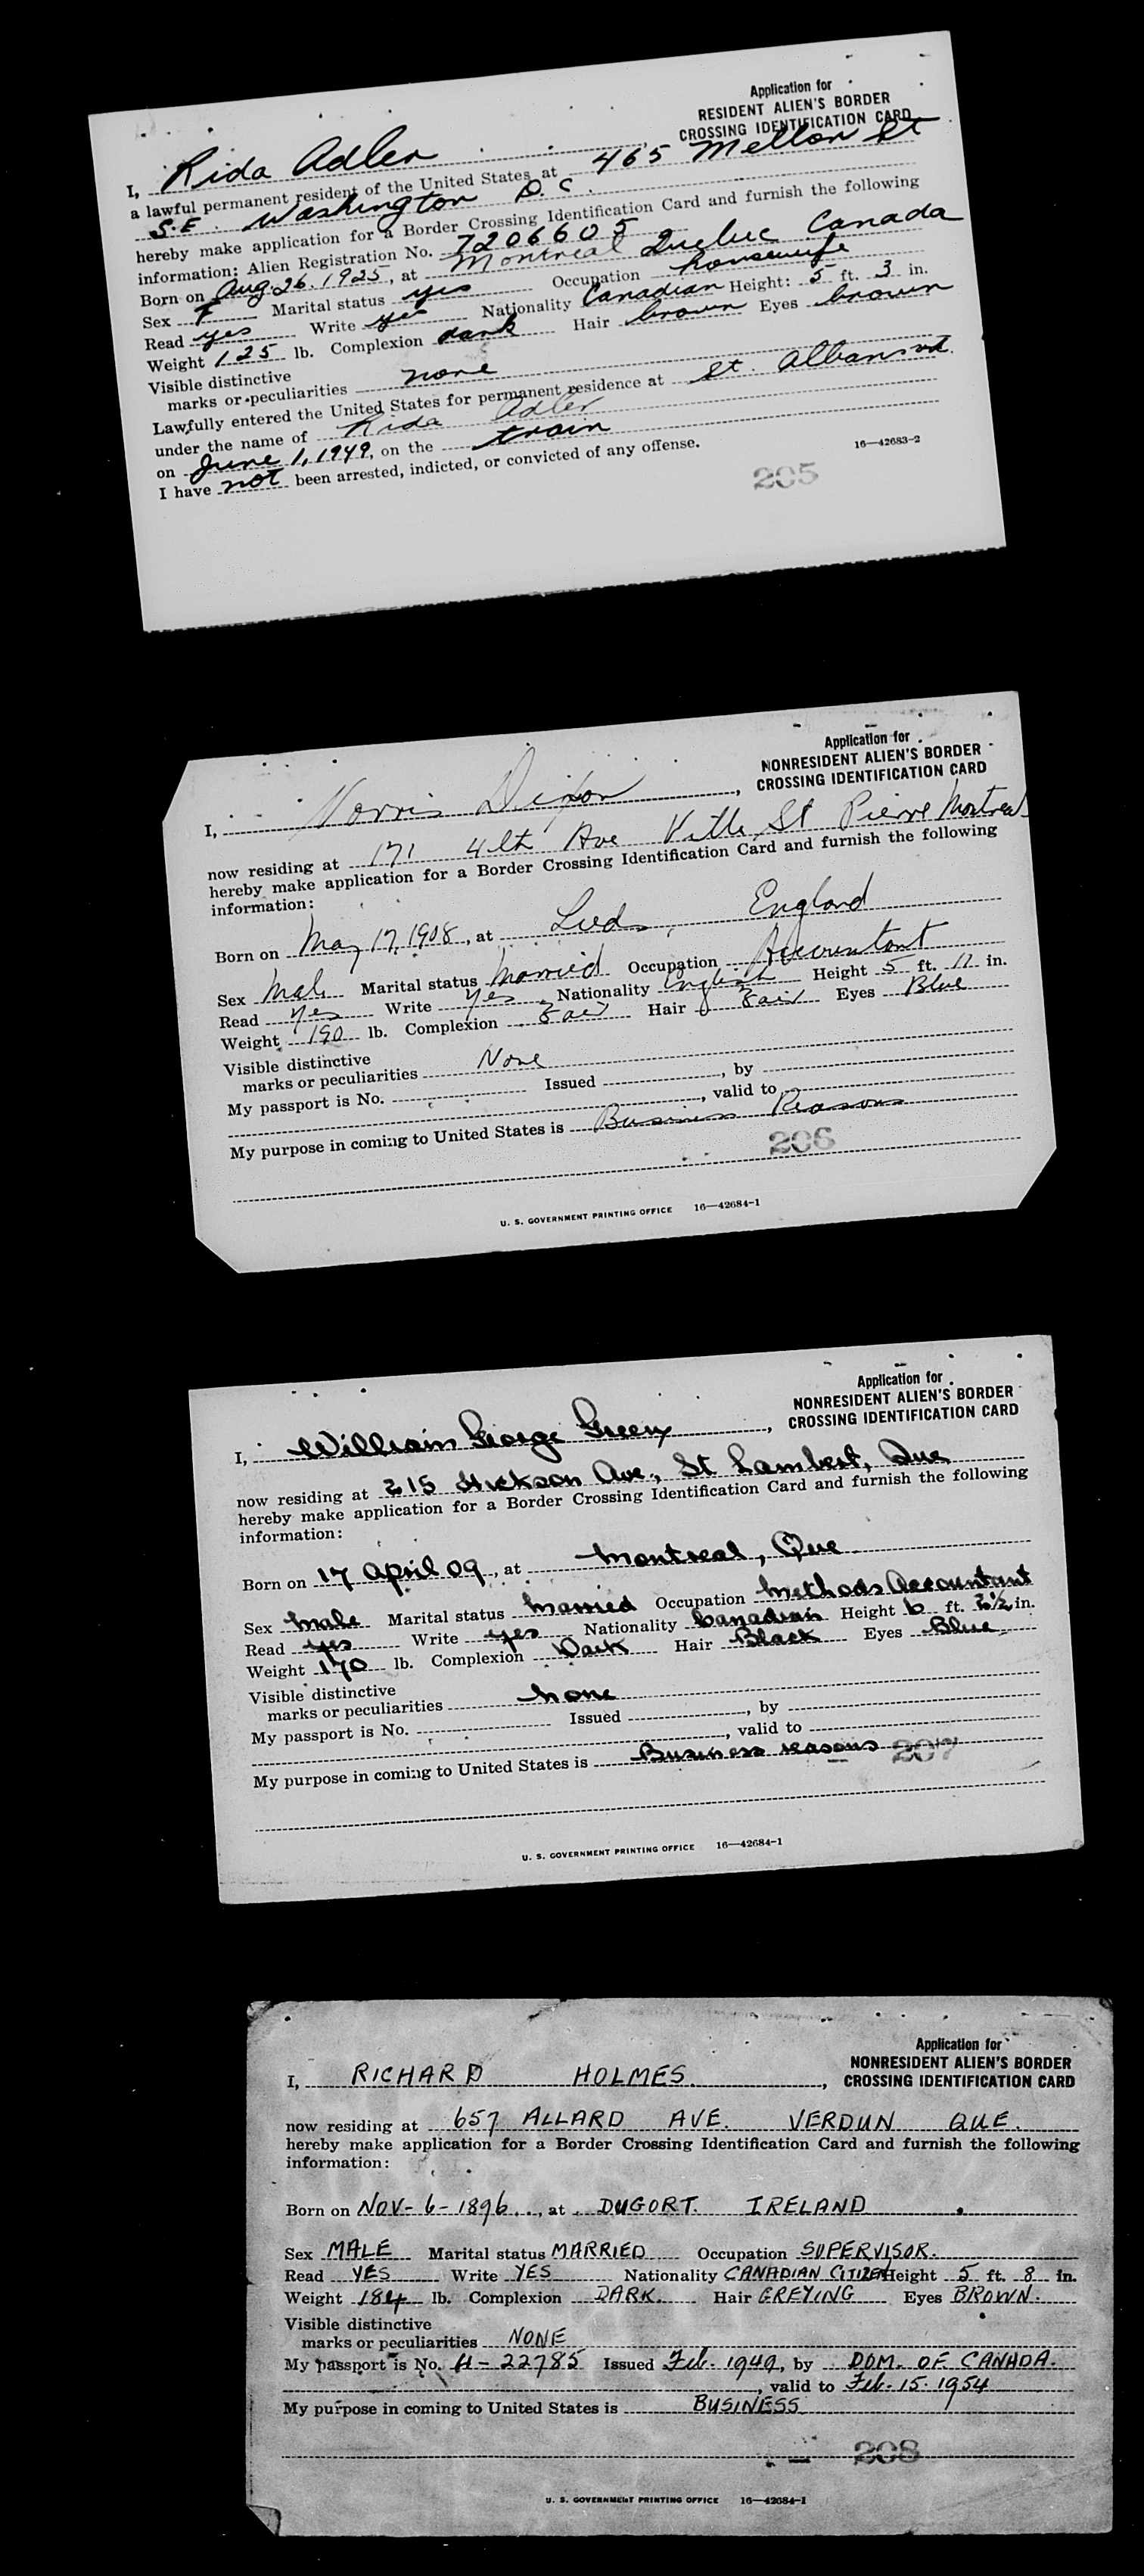 Application for
RESIDENT ALIEN'S BORDER
CROSSING IDENTIFICATION CARD
I, Rida Adler
a lawful permanent resident of the United States at 465 Mellon St
S.E. Washington D.C.
hereby make application for a Border Crossing Identification Card and furnish the following
information: Alien Registration No. 7206605
Born on Aug. 26. 1925, at Montreal Quebec Canada
Sex F Marital status yes Occupation housewife
Read yes Write yes Nationality Canadian Height: 5 ft. 3 in.
Weight 125 lb. Complexion dark Hair brown Eyes brown
Visible distinctive
marks or peculiarities none
Lawfully entered the United States for permanent residence at St. Albans Vt.
under the name of Rida Adler
on June 1, 1949, on the train
I have not been arrested, indicted, or convicted of any offense.
16—42683-2
205
Application for
NONRESIDENT ALIEN'S BORDER
CROSSING IDENTIFICATION CARD
I, Norris Dixon,
now residing at 171 4th Ave Ville St Pierre Montreal
hereby make application for a Border Crossing Identification Card and furnish the following
information:
Born on May 17, 1908, at Leeds, England
Sex Male Marital status Married Occupation Accountant
Read Yes Write Yes Nationality English Height 5 ft. 11 in.
Weight 190 lb. Complexion Fair Hair Fair Eyes Blue
Visible distinctive
marks or peculiarities None
My passport is No. Issued , by
, valid to
My purpose in coming to United States is Business Reasons
206
U. S. GOVERNMENT PRINTING OFFICE 16—42684-1
Application for
NONRESIDENT ALIEN'S BORDER
CROSSING IDENTIFICATION CARD
I, William George Green,
now residing at 215 Hickson Ave., St Lambert, Que
hereby make application for a Border Crossing Identification Card and furnish the following
information:
Born on 17 April 09, at Montreal, Que
Sex Male Marital status Married Occupation Methods Accountant
Read yes Write yes Nationality Canadian Height 6 ft. 2½ in.
Weight 170 lb. Complexion Dark Hair Black Eyes Blue
Visible distinctive
marks or peculiarities None
My passport is No. Issued , by
, valid to
My purpose in coming to United States is Business reasons 207
U. S. GOVERNMENT PRINTING OFFICE 16—42684-1
Application for
NONRESIDENT ALIEN'S BORDER
CROSSING IDENTIFICATION CARD
I, RICHARD HOLMES.,
now residing at 657 ALLARD AVE. VERDUN QUE.
hereby make application for a Border Crossing Identification Card and furnish the following
information:
Born on NOV-6-1896., at DUGORT. IRELAND
Sex MALE Marital status MARRIED Occupation SUPERVISOR.
Read YES Write YES Nationality CANADIAN CITIZEN Height 5 ft. 8 in.
Weight 184 lb. Complexion DARK. Hair GREYING Eyes BROWN.
Visible distinctive
marks or peculiarities NONE
My passport is No. 4-22785 Issued Feb. 1949, by DOM. OF CANADA.
, valid to Feb. 15. 1954
My purpose in coming to United States is BUSINESS
208
U. S. GOVERNMENT PRINTING OFFICE 16—42684-1